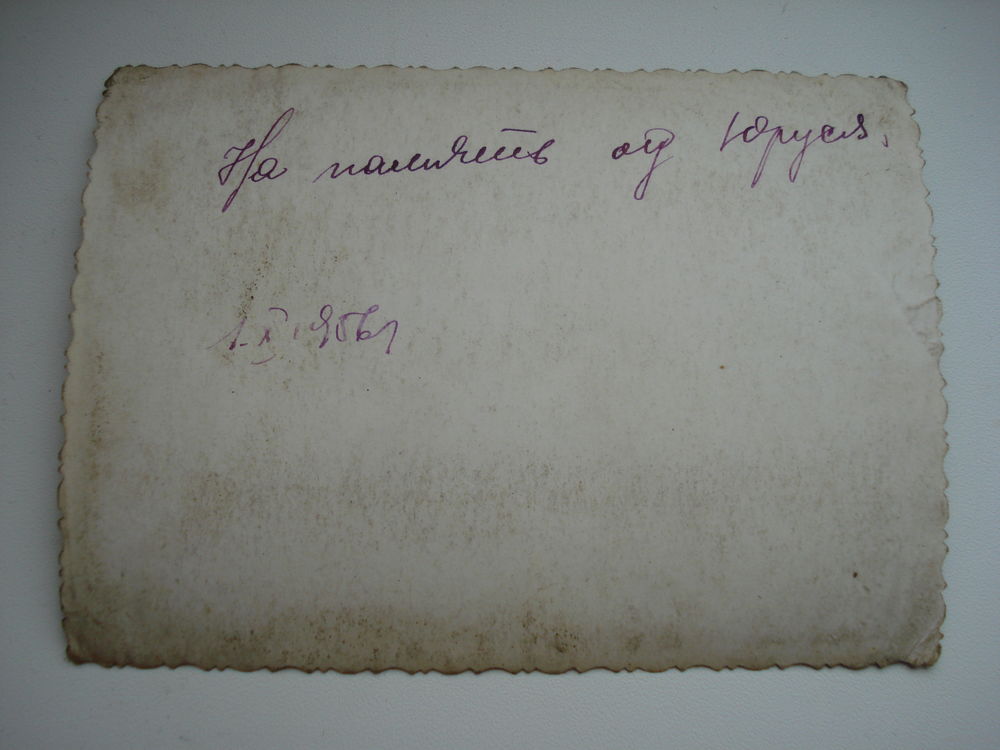 На память от Юруся.
1.X 1956г